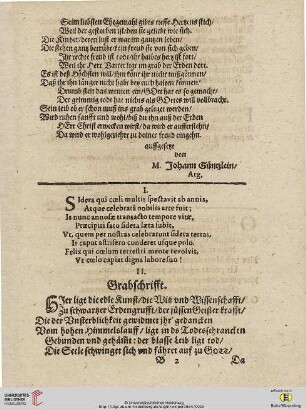 Seim liebsten Ehegemahl gibts tieffe Hertzens stich/
Weil der gestorben ist/den sie geliebt wie sich.
Die Kinder/deren lust er war im gantzen leben/
Die stehen gantz betrübt/ein freud sie von sich geben/
Ihr rechte freud ist todt/ahr habt los herz ist fort/
Weil ihr Herr Vatter liegt im grab der Erden dort.
Es ist deß Höchsten will/ihm könt ihr nicht mißgönnen/
Daß ihr ihn länger nicht habt bey euch haben können/
Drumb stellt das weinen ein/GOtt hat es so gemacht/
Der grimmig todt hat nichts als GOttes will vollbracht.
Sein leib ob er schon muß ins grab geleget werden/
Wird ruhen sanfft und wohl/biß du ihn auß der Erden
HErr Christ erwecken wirst/da wird er aufferstehn/
Da wird er wohlgemuth zu deiner freud eingehn.
auffgesetzt
von
M. Johann Güntzlein,
Arg.
I.
Sidera qui cœli multis spectavit ab annis,
Atque celebratâ nobilis arte fuit;
Is nunc annosæ transacto tempore vitæ,
Præcipui fato sidera læta subit,
Vt, quem per nostras celebrarunt sidera terras,
Is caput astrifero conderet usque polo.
Felix qui cœlum terrestri mente revolvit,
Vt cœlo capiat digna labore suo!
II.
Grabschrifft.
HIer ligt die edle Kunst/die Witz und Wissenschafft/
Zu schwartzer Erdengrufft/der süssen Geister krafft/
Die der Vnsterblichkeit gewidmet ihr gedancken
Vom hohen Himmelslauff/ ligt in des Todes schrancken
Gebunden und gehäfft: der blasse Leib ligt tod/
Die Seele schwinget sich und fähret auf zu GOTT/
B 2 Da